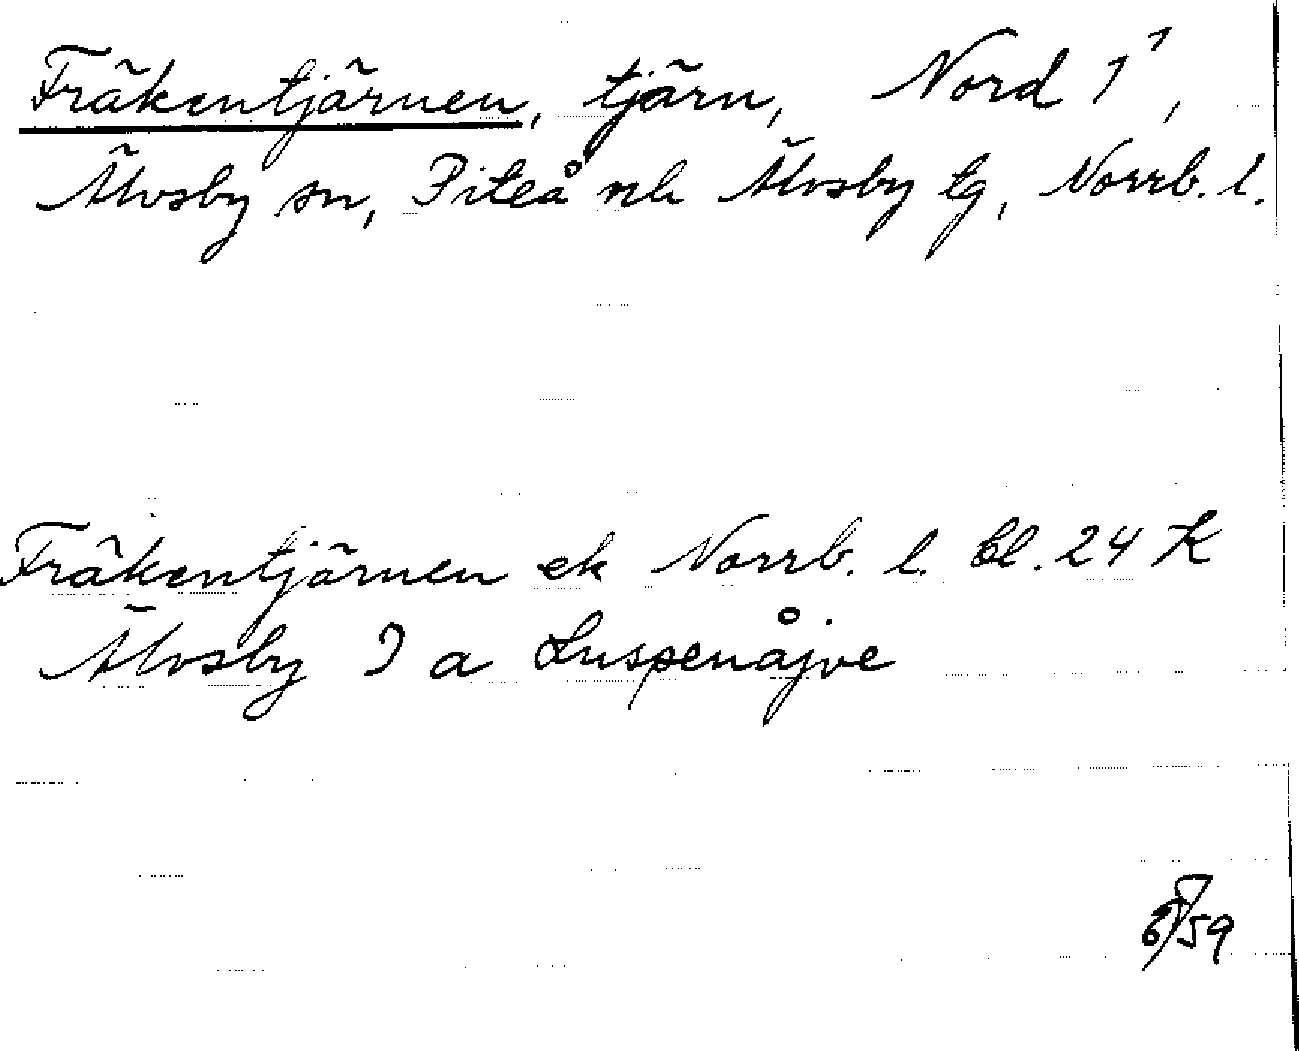 Fräkentjärnen, tjärn, Nord 1¹,
Älvsby sn, Piteå och Älvsby tg, Norrb. l.
Fräkentjärnen ek Norrb. l. bl. 24 K
Älvsby I a Luspenåjve